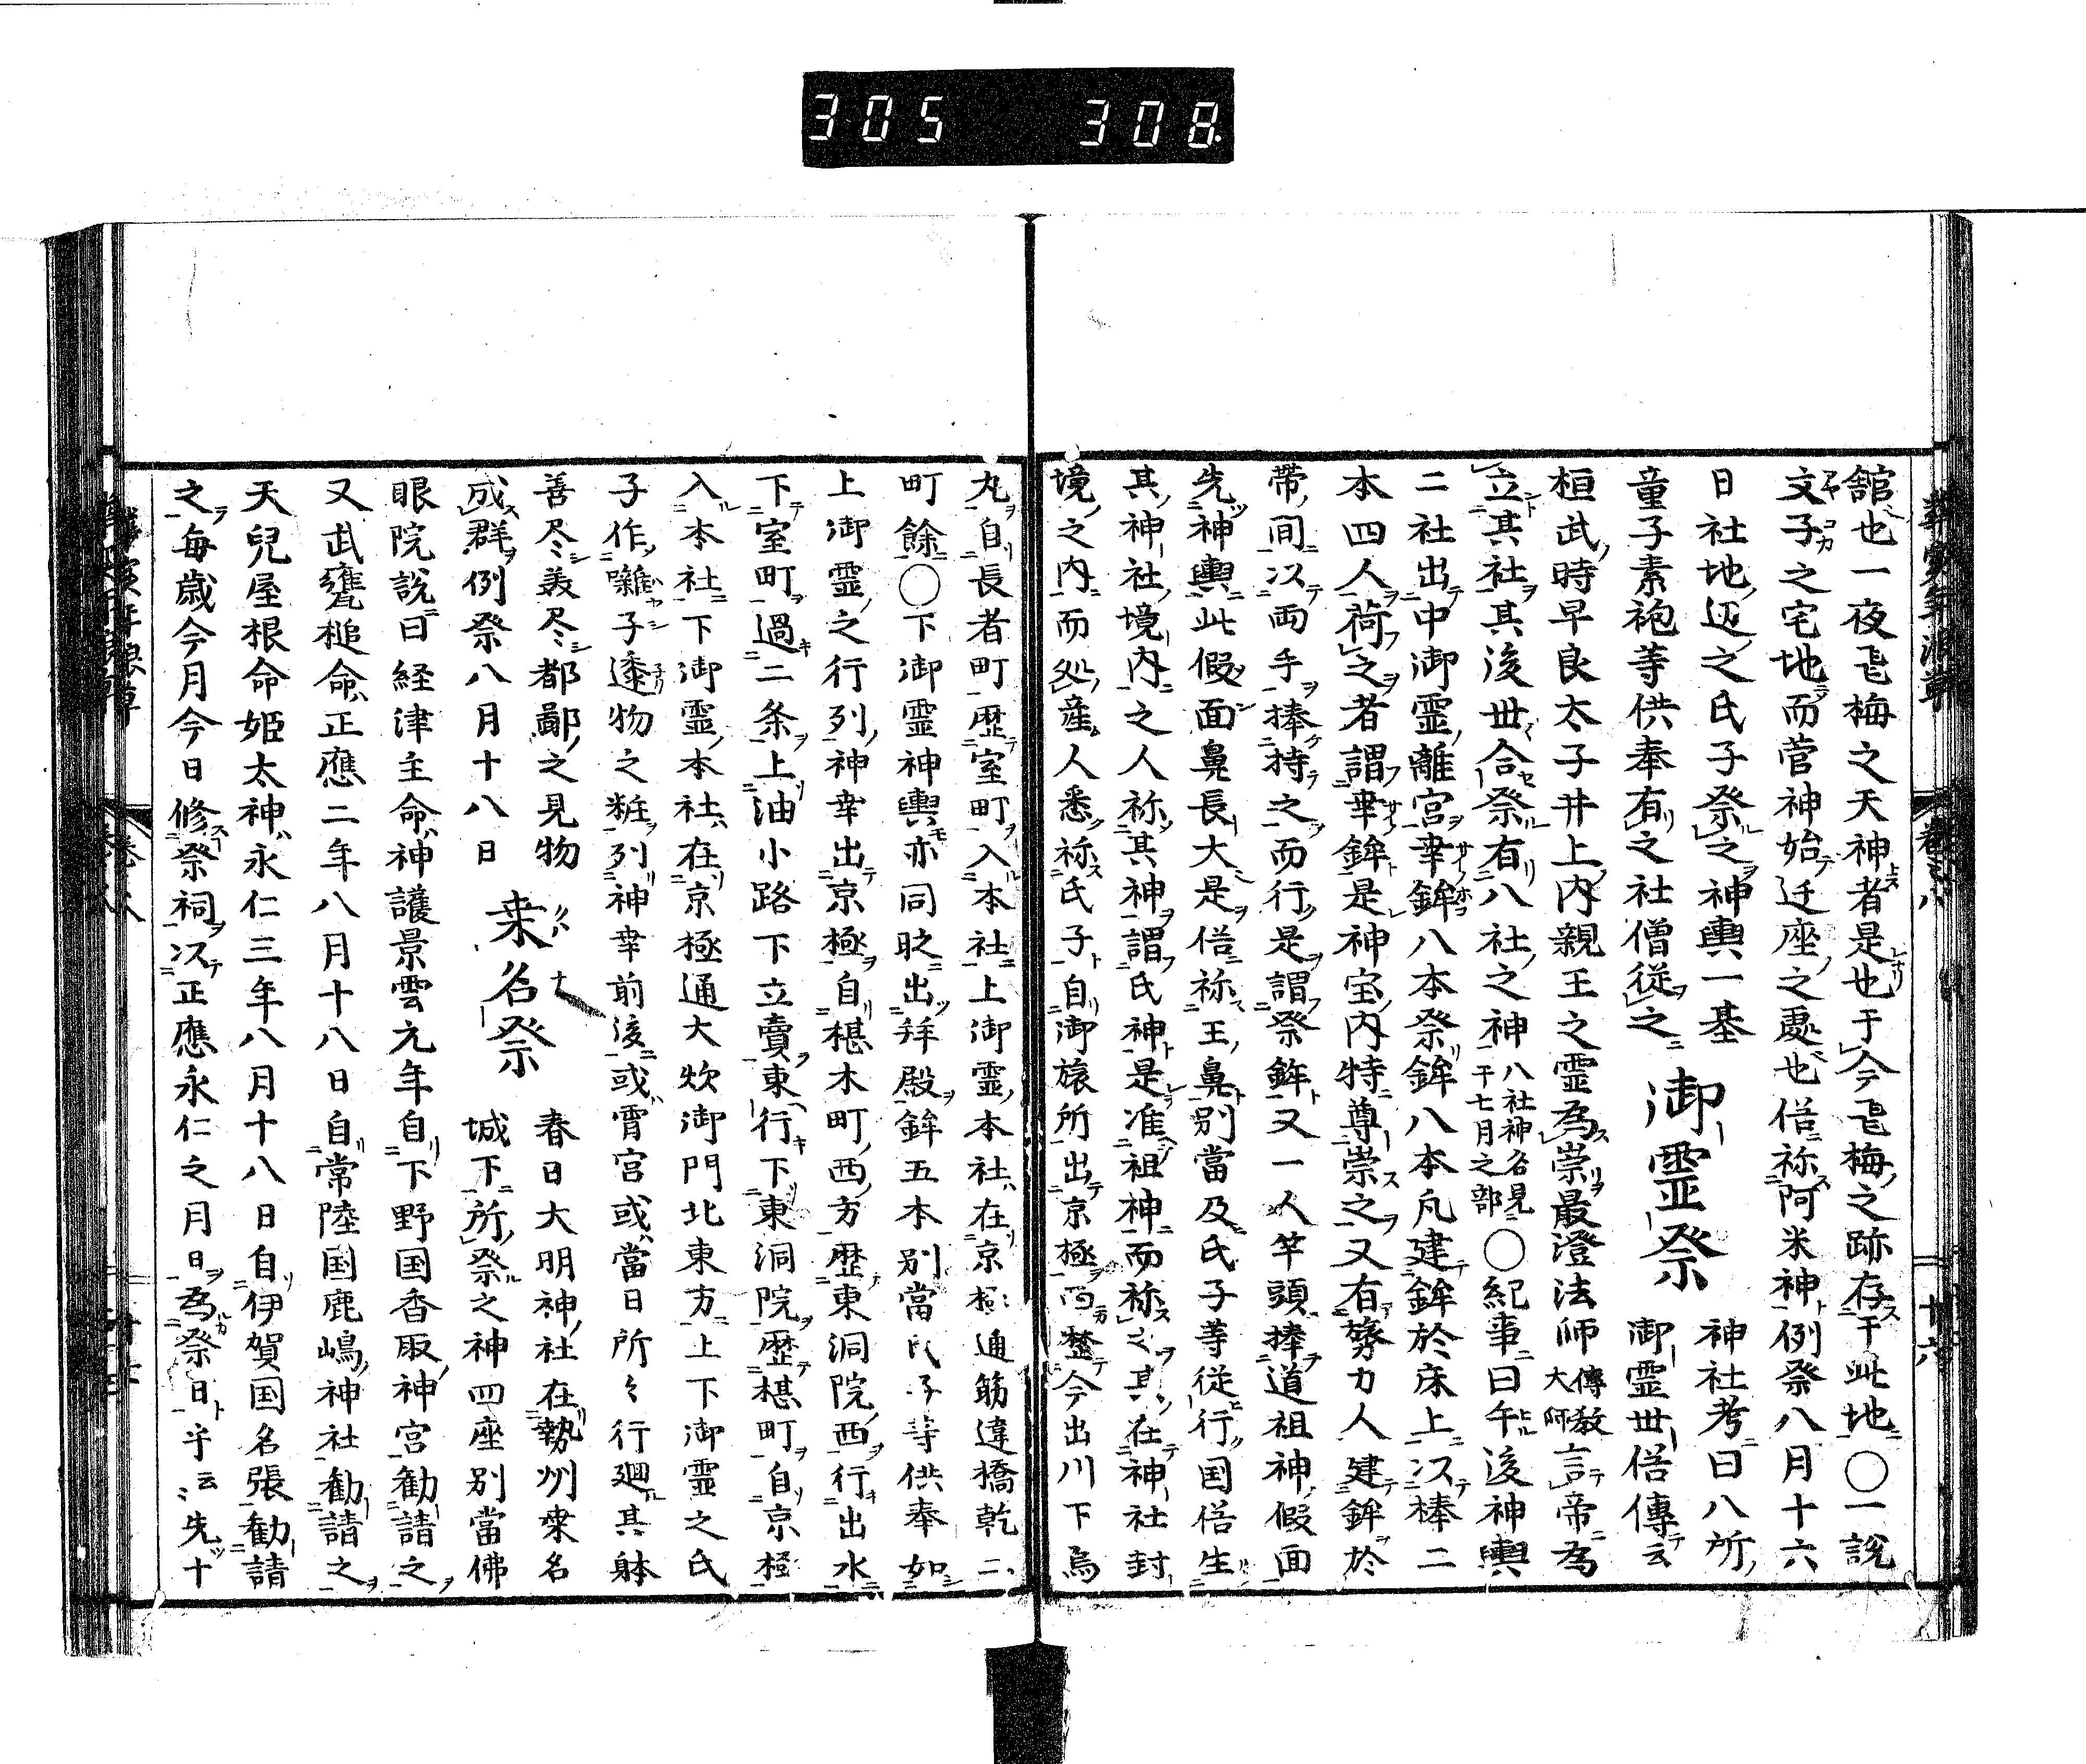 305 308
舘也一夜飛梅之天神者是也于今飛梅之跡存于此地〇一說
文子之宅地而菅神始迁座之處也俗称阿米神例祭八月十六
日社地辺之氏子祭之神輿一基
童子素袍等供奉有之社僧從之
御霊祭
神社考曰八所
御霊世俗傳云
桓武時早良太子井上内親王之霊為崇最澄法师傳教大师言帝為
立其社其後世合祭有八社之神八社神名見于七月之部〇紀事曰午後神輿
二社出中御霊離宮幸鉾八本祭鉾八本凡建鉾於床上以棒二
本四人荷之者謂幸鉾是神宝内特尊崇之又有勇力人建鉾於
帶間以両手捧持之而行是謂祭鉾又一人竿頭捧道祖神假面
先神輿此假面鼻長大是俗称王鼻別當及氏子等從行国俗生
其神社境内之人称其神謂氏神是准祖神而称之其在神社封
境之内而処産人悉称氏子自御旅所出京極西整今出川下烏
丸自長者町歴室町入本社上御霊本社在京極通筋違橋乾二
町餘〇下御霊神輿亦同時出拜殿鉾五本別當氏子等供奉如
上御霊之行列神幸出京極自椹木町西方歴東洞院西行出水
下室町過二条上油小路下立賣東行下東洞院歴椹町自京極
入本社下御霊本社在京極通大炊御門北東方上下御霊之氏
子作囃子邌物之粧列神幸前後或霄宮或當日所々行廻其躰
善尽美尽都鄙之見物
成群例祭八月十八日
桒名祭
春日大明神社在勢州桒名
城下所祭之神四座別當佛
眼院說曰経津主命神護景雲元年自下野国香取神宮勧請之
又武甕槌命正應二年八月十八日自常陸国鹿嶋神社勧請之
天兒屋根命姫太神永仁三年八月十八日自伊賀国名張勧請
之每歲今月今日修祭祠以正應永仁之月日為祭日乎云先十